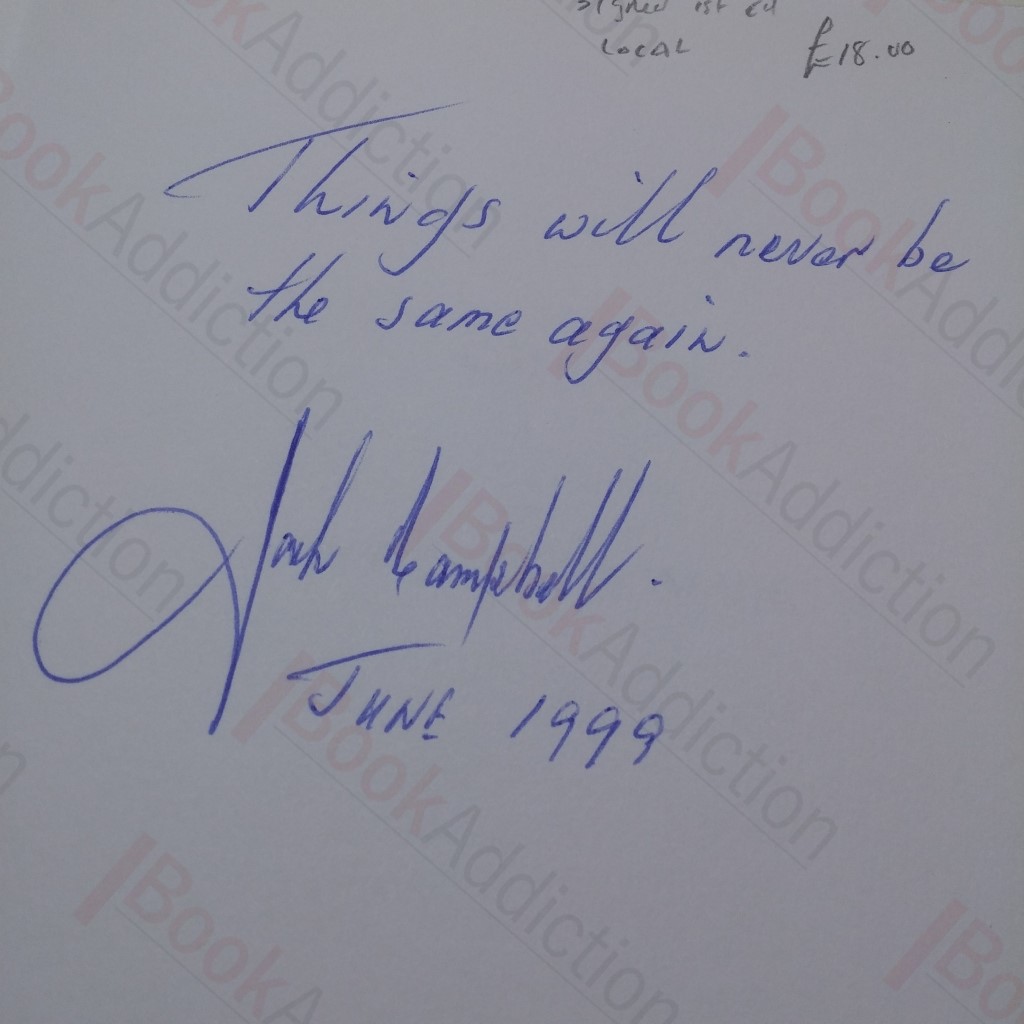 signed 1st ed
LOCAL £18.00
Things will never be
the same again.
Jack Campbell.
JUNE 1999
BookAddiction